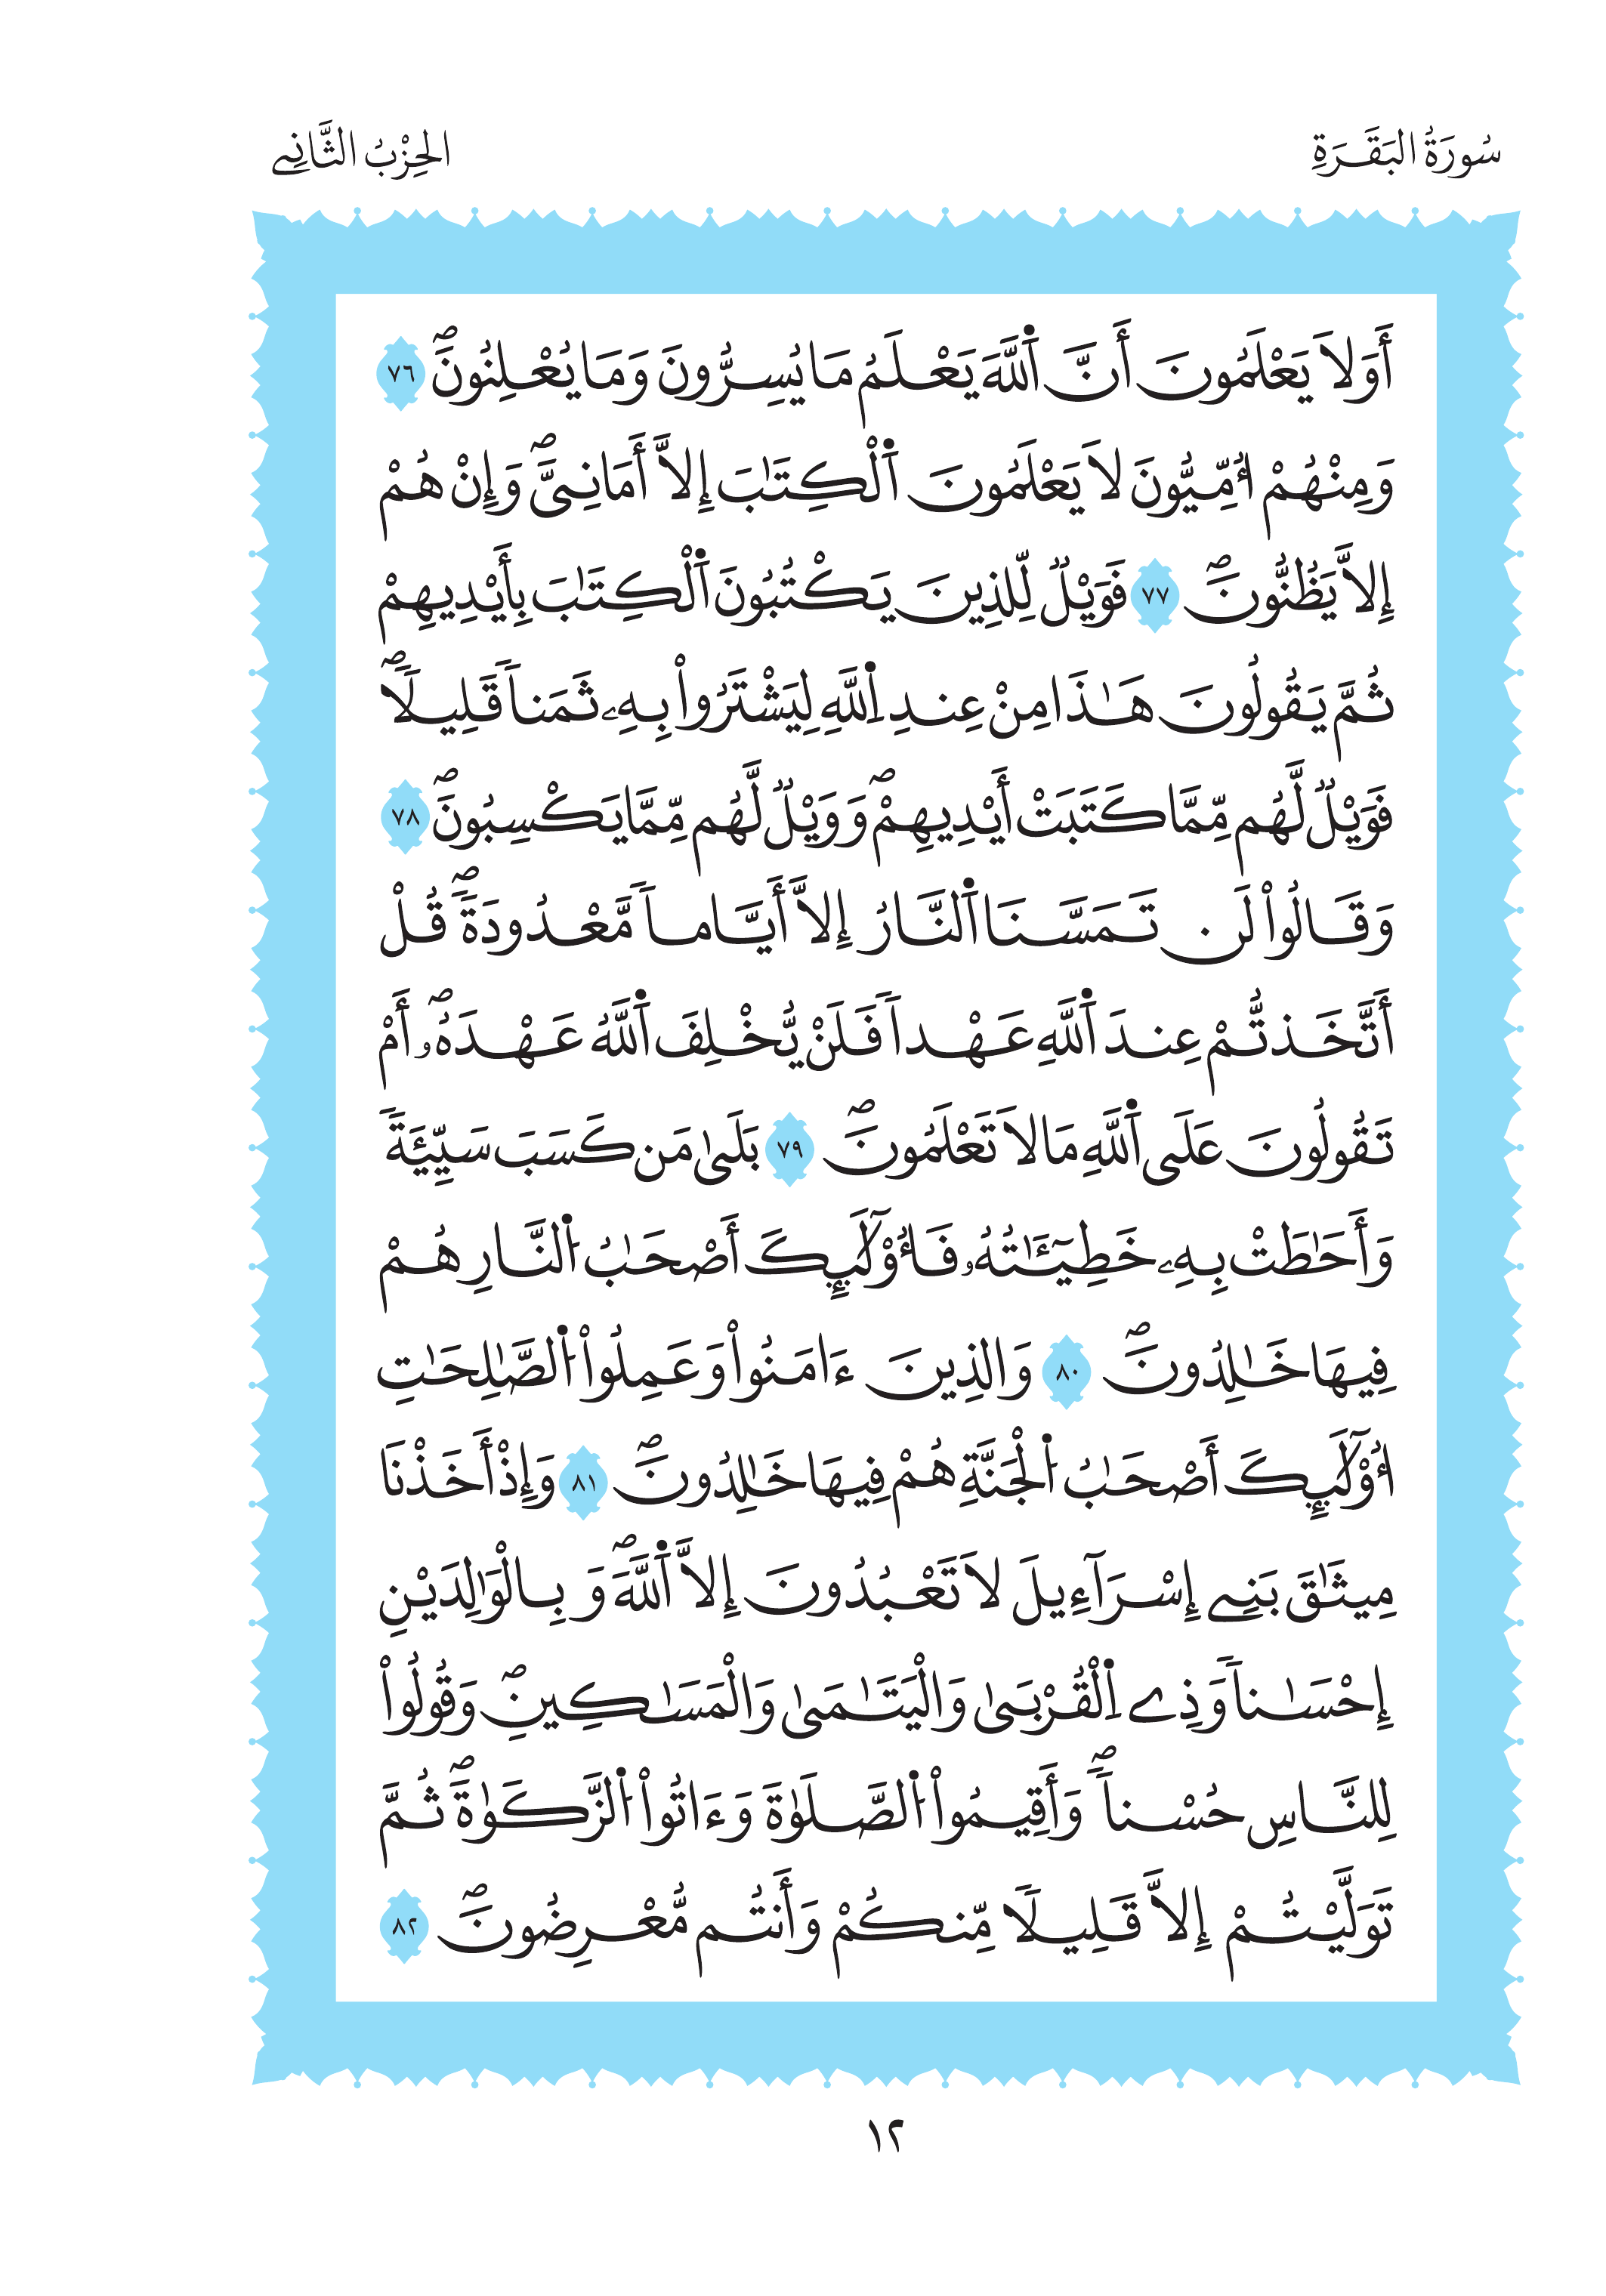 سُورَةُ البَقَرَةِ
الحِزْبُ الثَّانِے
أَوَلاَ يَعْلَمُونَ أَنَّ اَ۬للَّهَ يَعْلَمُ مَا يُسِرُّونَ وَمَا يُعْلِنُونَۖ ٧٦
وَمِنْهُمْ أُمِّيُّونَ لاَ يَعْلَمُونَ اَ۬لْكِتَٰبَ إِلاَّ أَمَانِيَّۖ وَإِنْ هُمْ
إِلاَّ يَظُنُّونَۖ ٧٧ فَوَيْلٞ لِّلذِينَ يَكْتُبُونَ اَ۬لْكِتَٰبَ بِأَيْدِيهِمْ
ثُمَّ يَقُولُونَ هَٰذَا مِنْ عِندِ اِ۬للَّهِ لِيَشْتَرُواْ بِهِۦ ثَمَناٗ قَلِيلاٗۖ
فَوَيْلٞ لَّهُم مِّمَّا كَتَبَتْ أَيْدِيهِمْۖ وَوَيْلٞ لَّهُم مِّمَّا يَكْسِبُونَۖ ٧٨
وَقَالُواْ لَن تَمَسَّنَا اَ۬لنَّارُ إِلاَّ أَيَّاماٗ مَّعْدُودَةٗۖ قُلْ
أَتَّخَذتُّمْ عِندَ اَ۬للَّهِ عَهْداٗ فَلَنْ يُّخْلِفَ اَ۬للَّهُ عَهْدَهُۥۖ أَمْ
تَقُولُونَ عَلَى اَ۬للَّهِ مَا لاَ تَعْلَمُونَۖ ٧٩ بَلَىٰ مَن كَسَبَ سَيِّئَةٗ
وَأَحَٰطَتْ بِهِۦ خَطِيٓـَٰٔتُهُۥ فَأُوْلَٰٓئِكَ أَصْحَٰبُ اُ۬لنَّارِ هُمْ
فِيهَا خَٰلِدُونَۖ ٨٠ وَالذِينَ ءَامَنُواْ وَعَمِلُواْ اُ۬لصَّٰلِحَٰتِ
أُوْلَٰٓئِكَ أَصْحَٰبُ اُ۬لْجَنَّةِ هُمْ فِيهَا خَٰلِدُونَۖ ٨١ وَإِذْ أَخَذْنَا
مِيثَٰقَ بَنِے إِسْرَآءِيلَ لاَ تَعْبُدُونَ إِلاَّ اَ۬للَّهَۖ وَبِالْوَٰلِدَيْنِ
إِحْسَٰناٗ وَذِے اِ۬لْقُرْبَىٰ وَالْيَتَٰمَىٰ وَالْمَسَٰكِينِۖ وَقُولُواْ
لِلنَّاسِ حُسْناٗۖ وَأَقِيمُواْ اُ۬لصَّلَوٰةَ وَءَاتُواْ اُ۬لزَّكَوٰةَۖ ثُمَّ
تَوَلَّيْتُمْ إِلاَّ قَلِيلاٗ مِّنكُمْ وَأَنتُم مُّعْرِضُونَۖ ٨٢
١٢